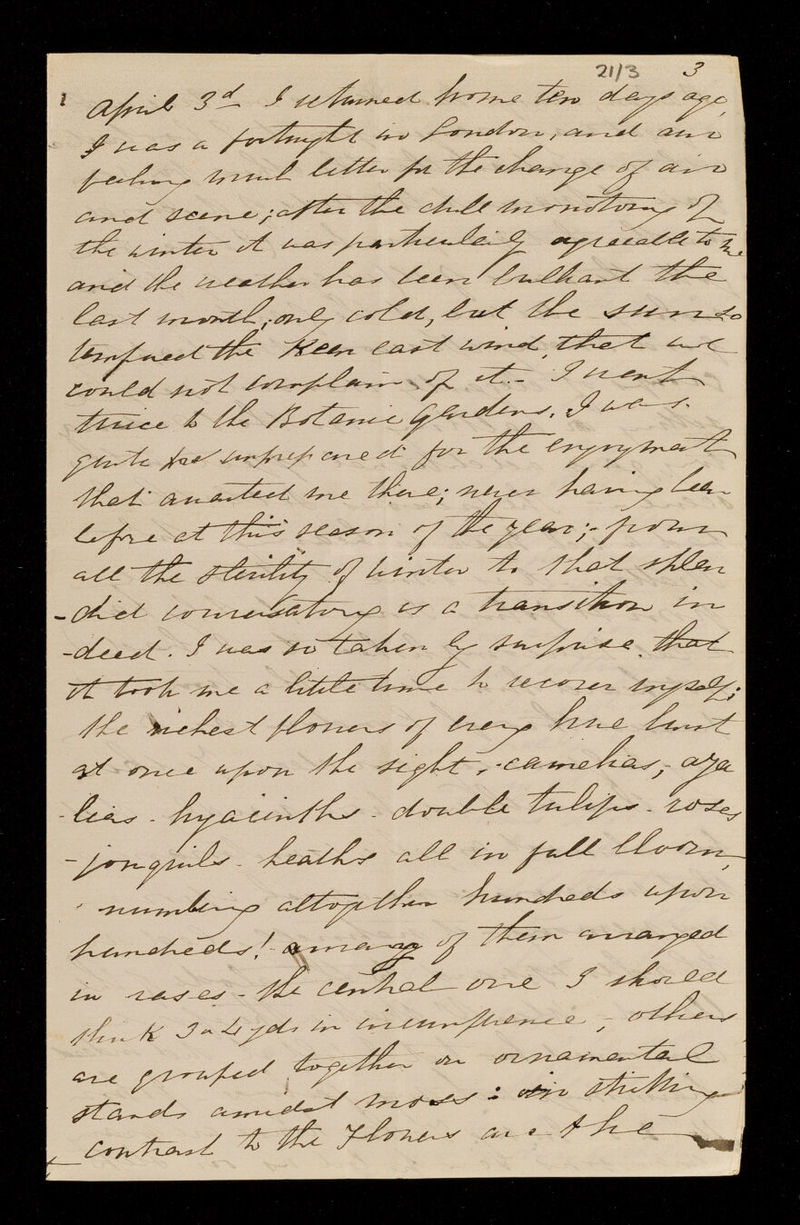 21/3 3
April 3d I returned home ten days ago,
I was a fortnight in London, and am
feeling much better for the change of air
and scene; after the dull monotony of
the winter it was particularly agreeable to me
and the weather has been brilliant the
last month; only cold, but the sun so
tempered the keen east wind, that we
could not complain of it. - I went
twice to the Botanic Gardens, I was
quite unprepared for the enjoyment
that awaited me there; never having been
before at this season of the year; - from
all the sterility of winter to that splen
-did conservatory is a transition in
-deed. I was so taken by surprise that
it took me a little time to recover myself;
the richest flowers of every hue burst
at once upon the sight, - camelias, - aza
-lias - hyacinths - double tulips - roses
- jonquils - heaths all in full bloom,
numbering altogether hundreds upon
hundreds! many of them arranged
in vases - the central one I should
think 3 or 4 yds in circumference, - others
are grouped together on ornamental
stands amidst moss: in striking
contrast to the flowers are the